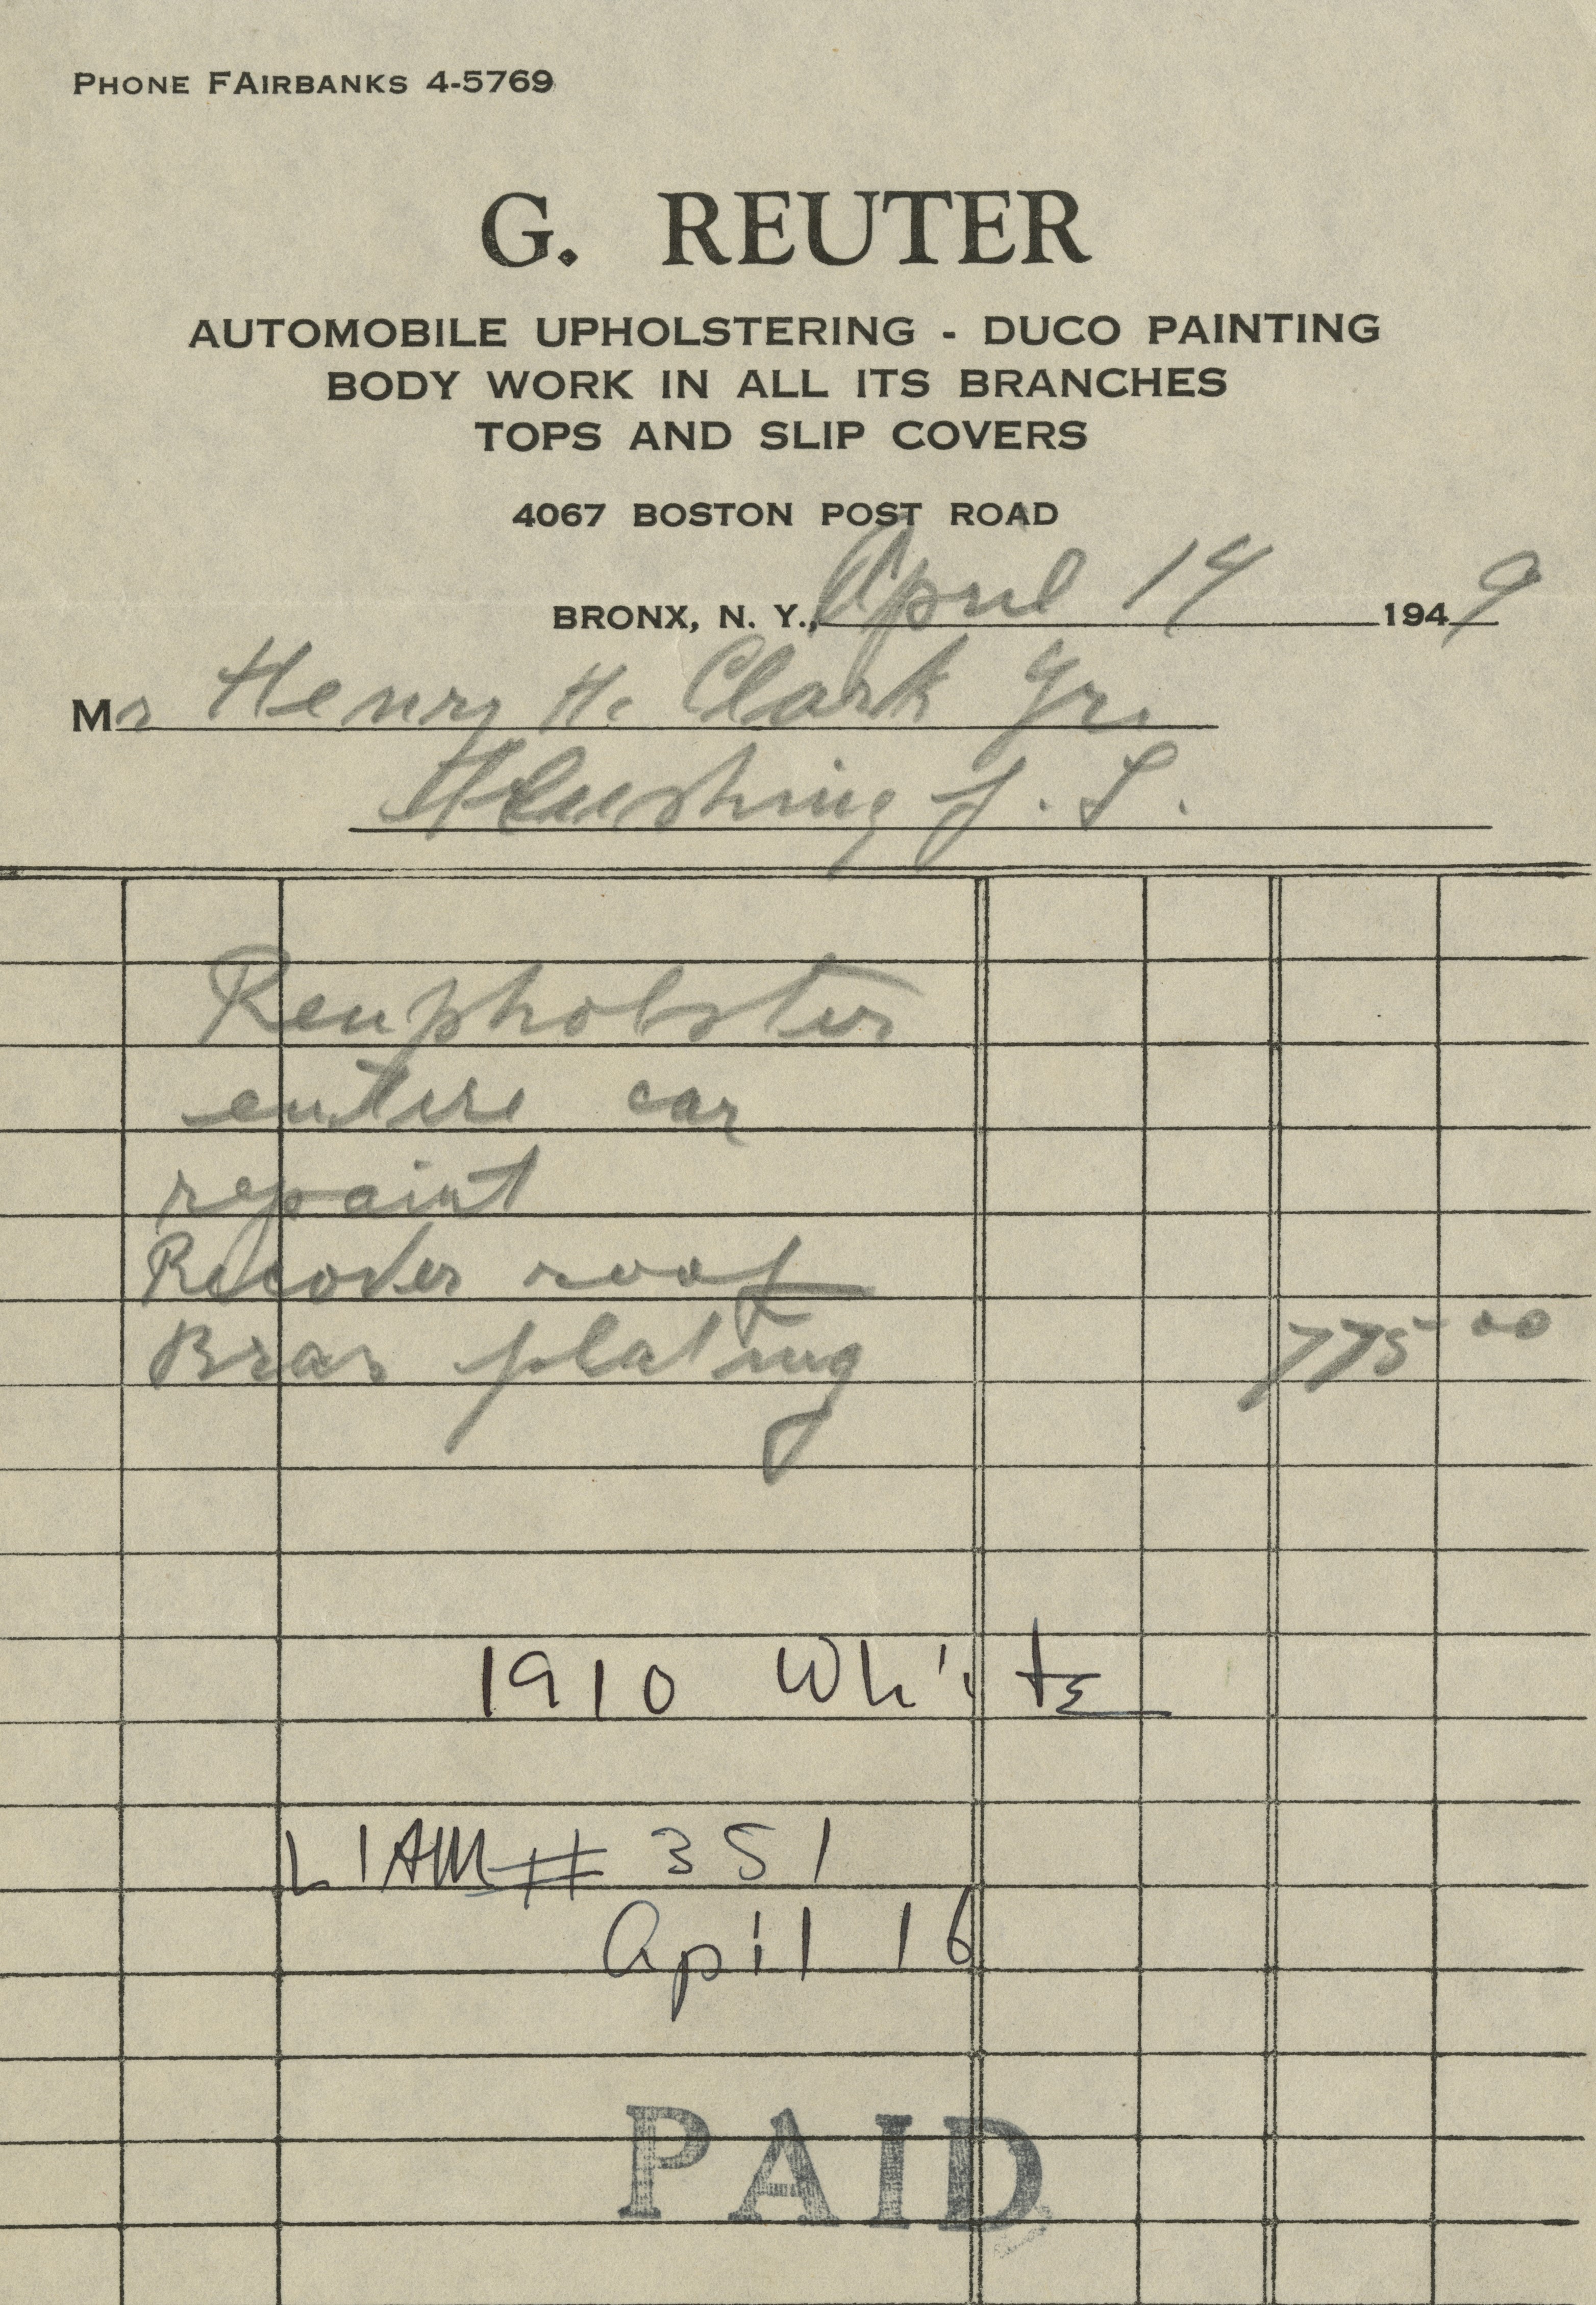 PHONE FAIRBANKS 4-5769
G. REUTER
AUTOMOBILE UPHOLSTERING - DUCO PAINTING
BODY WORK IN ALL ITS BRANCHES
TOPS AND SLIP COVERS
4067 BOSTON POST ROAD
BRONX, N. Y., April 14 1949
Mr Henry H. Clark Jr.
Flushing L. I.
Reupholster
entire car
repaint
Recover roof
Bras plating 775 00
1910 White
LIAM # 351
April 16
PAID